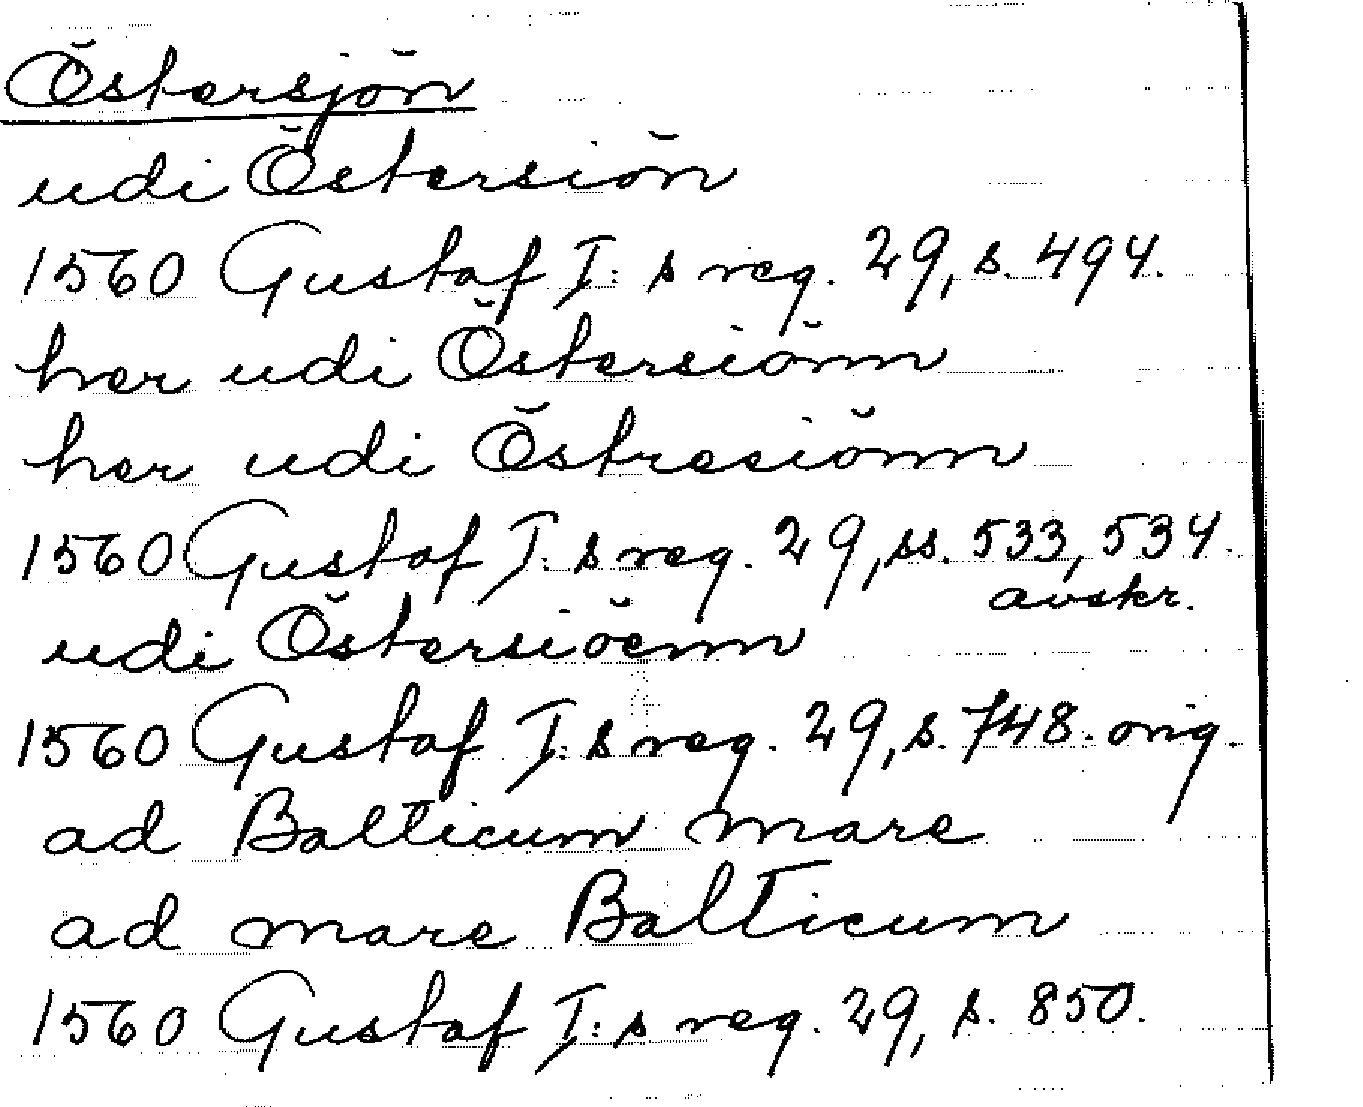 Östersjön
udi Östersiön
1560 Gustaf I:s reg. 29, s. 494.
her udi Östersiönn
her udi Östresiönn
1560 Gustaf I:s reg. 29, ss. 533, 534.
avskr.
udi Östersiöenn
1560 Gustaf I:s reg. 29, s. 748. orig.
ad Balticum mare
ad mare Balticum
1560 Gustaf I:s reg. 29, s. 850.